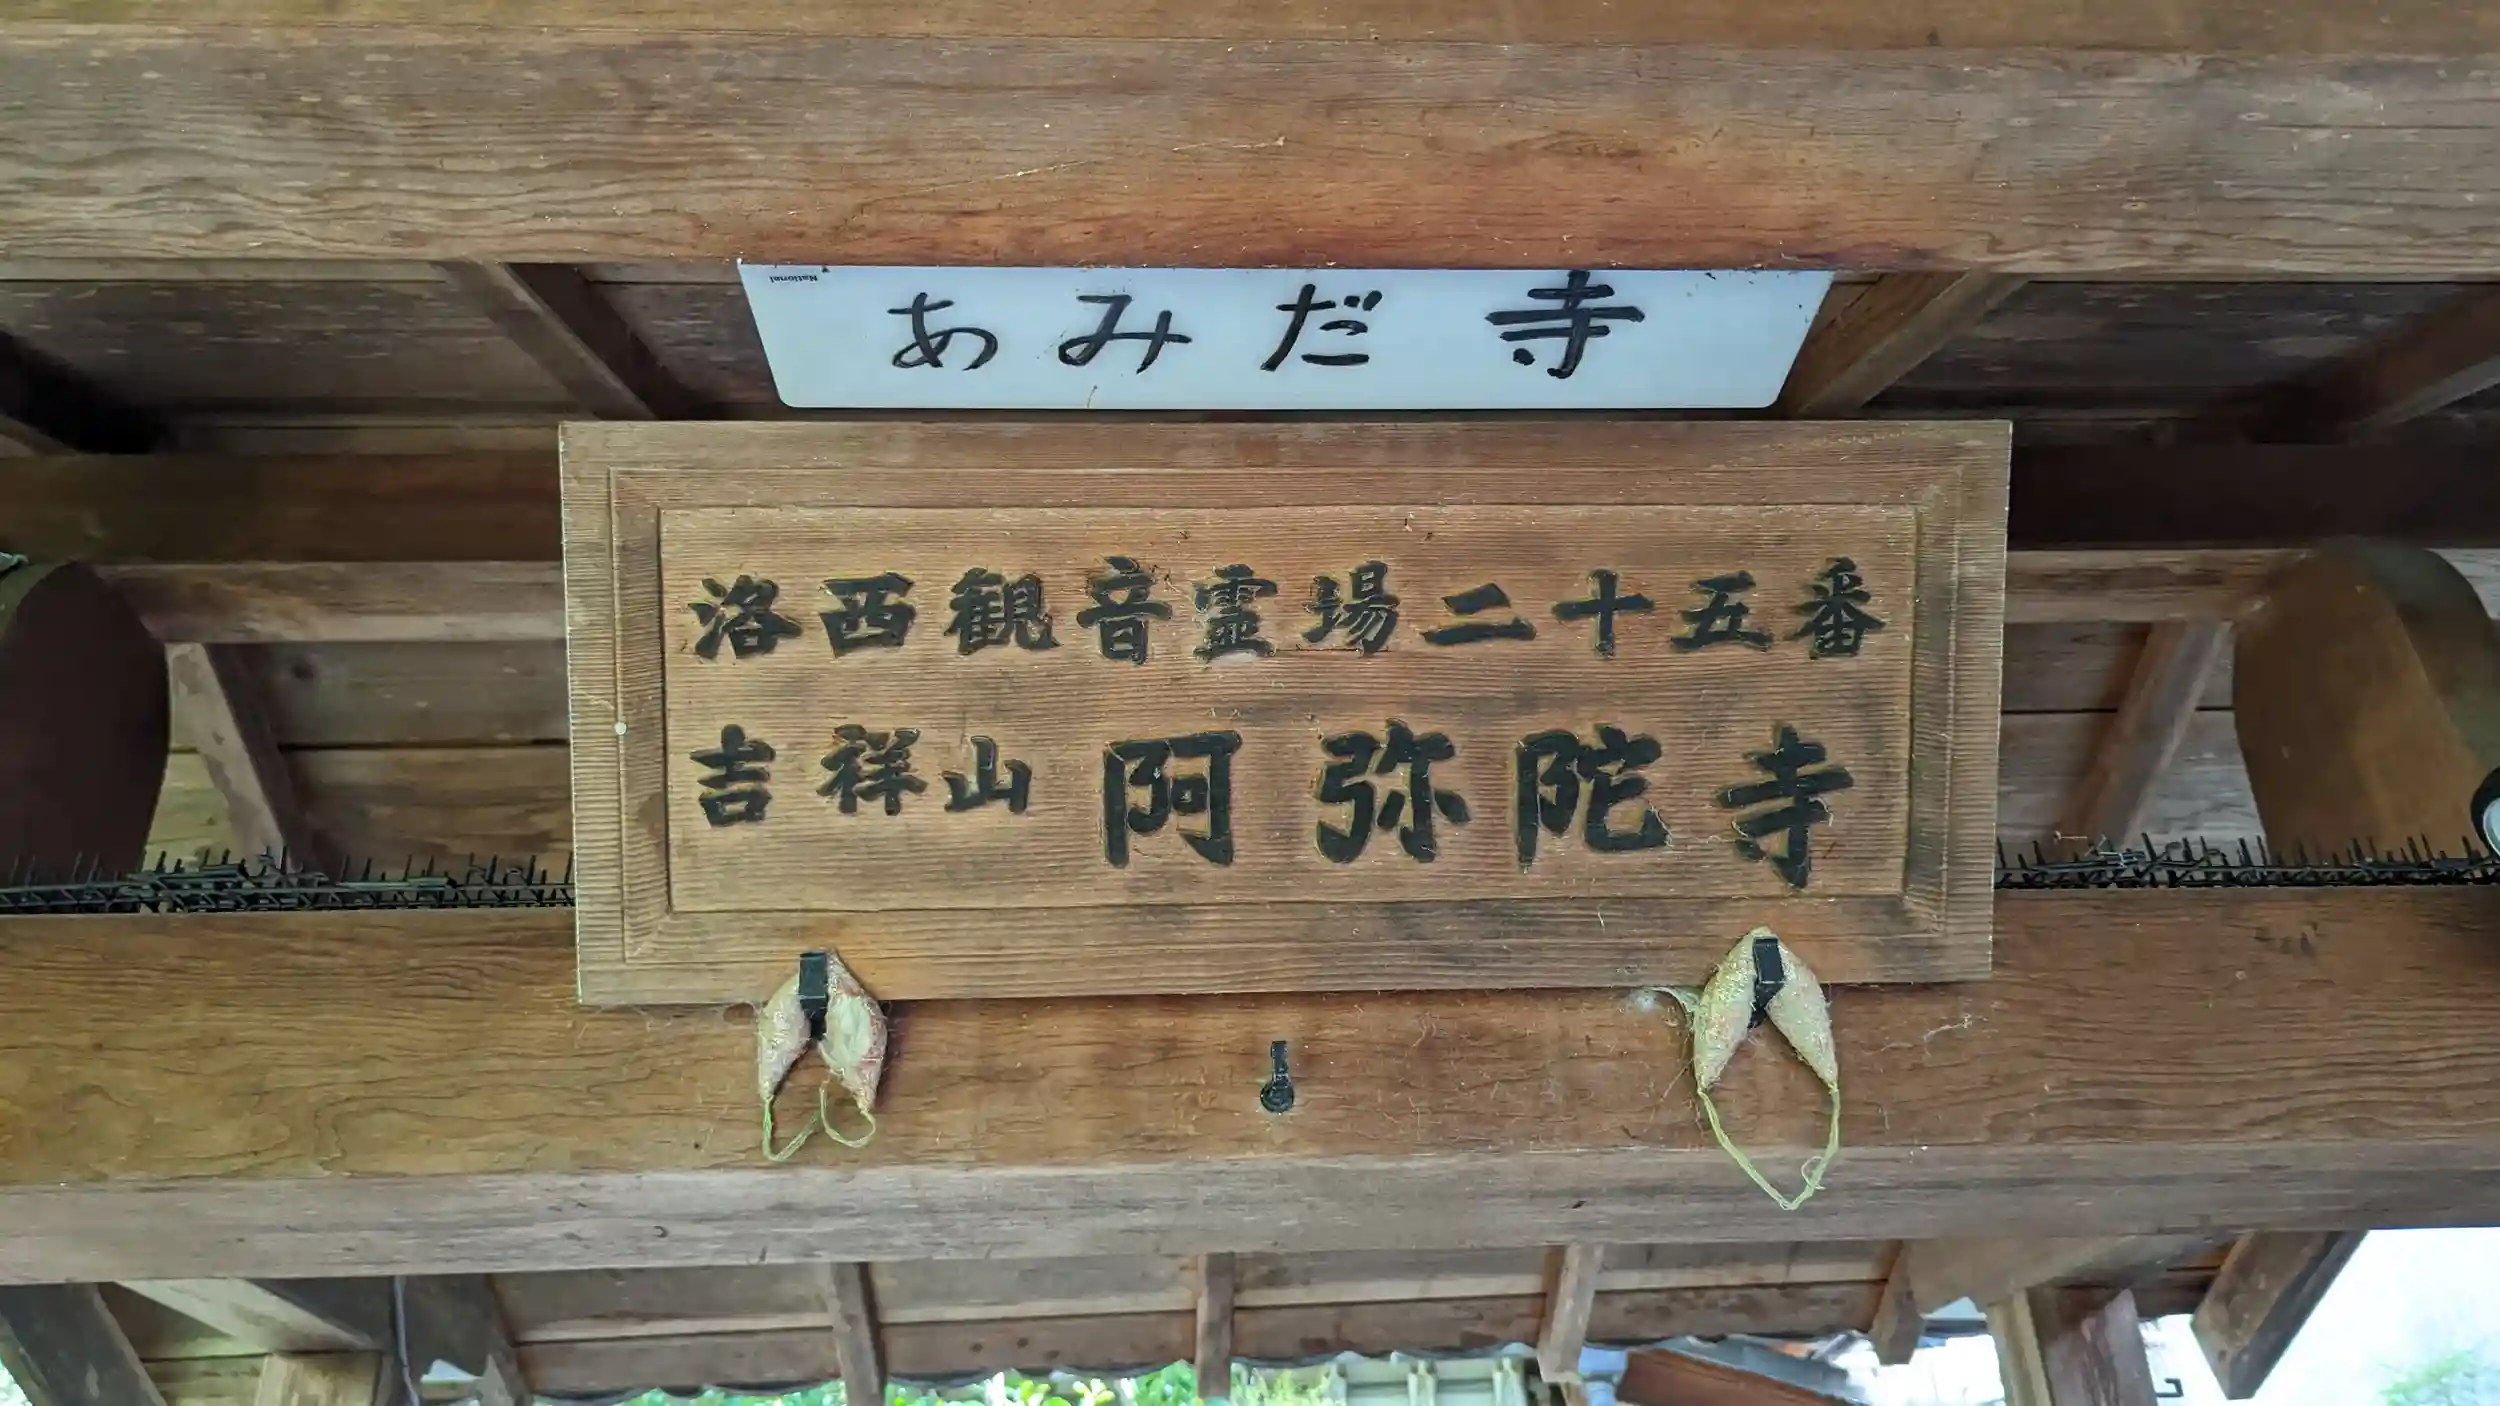 National
あみだ寺
洛西観音霊場二十五番
吉祥山 阿弥陀寺